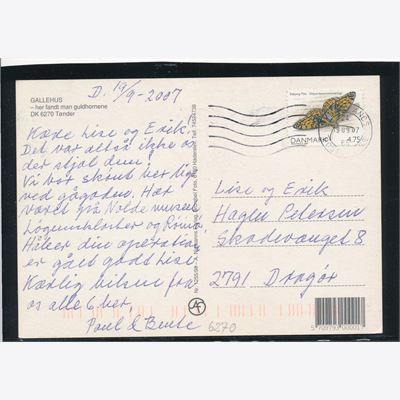 D. 19/9-2007
GALLEHUS
– her fandt man guldhornene
DK 6270 Tønder
Kære Lise og Erik.
Det var altså ikke os
der stjal dem!
Vi bor skønt her lige
ved gågaden. Har
været på Nolde museum
Løgumkloster og Rømø.
Håber din operation
er gået godt Lise.
Kærlig hilsen fra
os alle 6 her,
Poul & Bente
6270
DANMARK 4.75
19.09.07
Lise og Erik
Hagen Petersen
Skodevænget 8
2791 Dragør
5 709793 000001